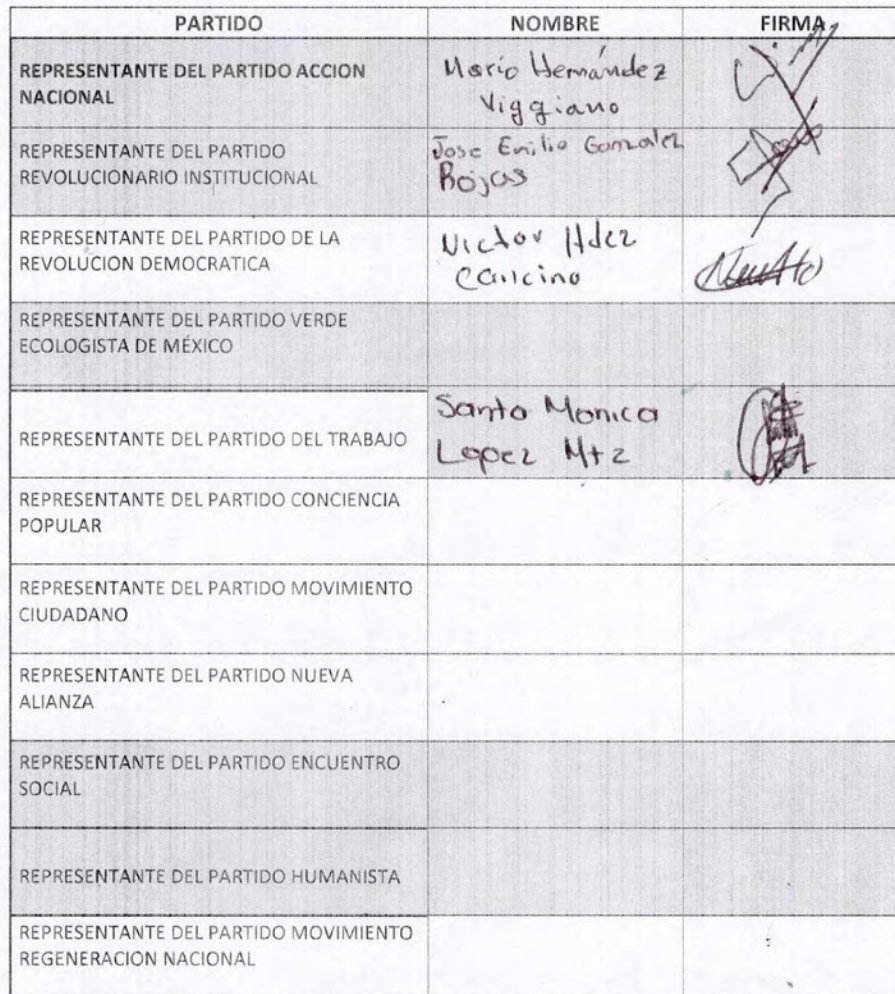 PARTIDO NOMBRE FIRMA
REPRESENTANTE DEL PARTIDO ACCION
NACIONAL
Mario Hernández
Viggiano
REPRESENTANTE DEL PARTIDO
REVOLUCIONARIO INSTITUCIONAL
Jose Emilio Gonzalez
Rojas
REPRESENTANTE DEL PARTIDO DE LA
REVOLUCION DEMOCRATICA
Victor Hdez
Cancino
REPRESENTANTE DEL PARTIDO VERDE
ECOLOGISTA DE MÉXICO
REPRESENTANTE DEL PARTIDO DEL TRABAJO
Santa Monica
Lopez Mtz
REPRESENTANTE DEL PARTIDO CONCIENCIA
POPULAR
REPRESENTANTE DEL PARTIDO MOVIMIENTO
CIUDADANO
REPRESENTANTE DEL PARTIDO NUEVA
ALIANZA
REPRESENTANTE DEL PARTIDO ENCUENTRO
SOCIAL
REPRESENTANTE DEL PARTIDO HUMANISTA
REPRESENTANTE DEL PARTIDO MOVIMIENTO
REGENERACION NACIONAL